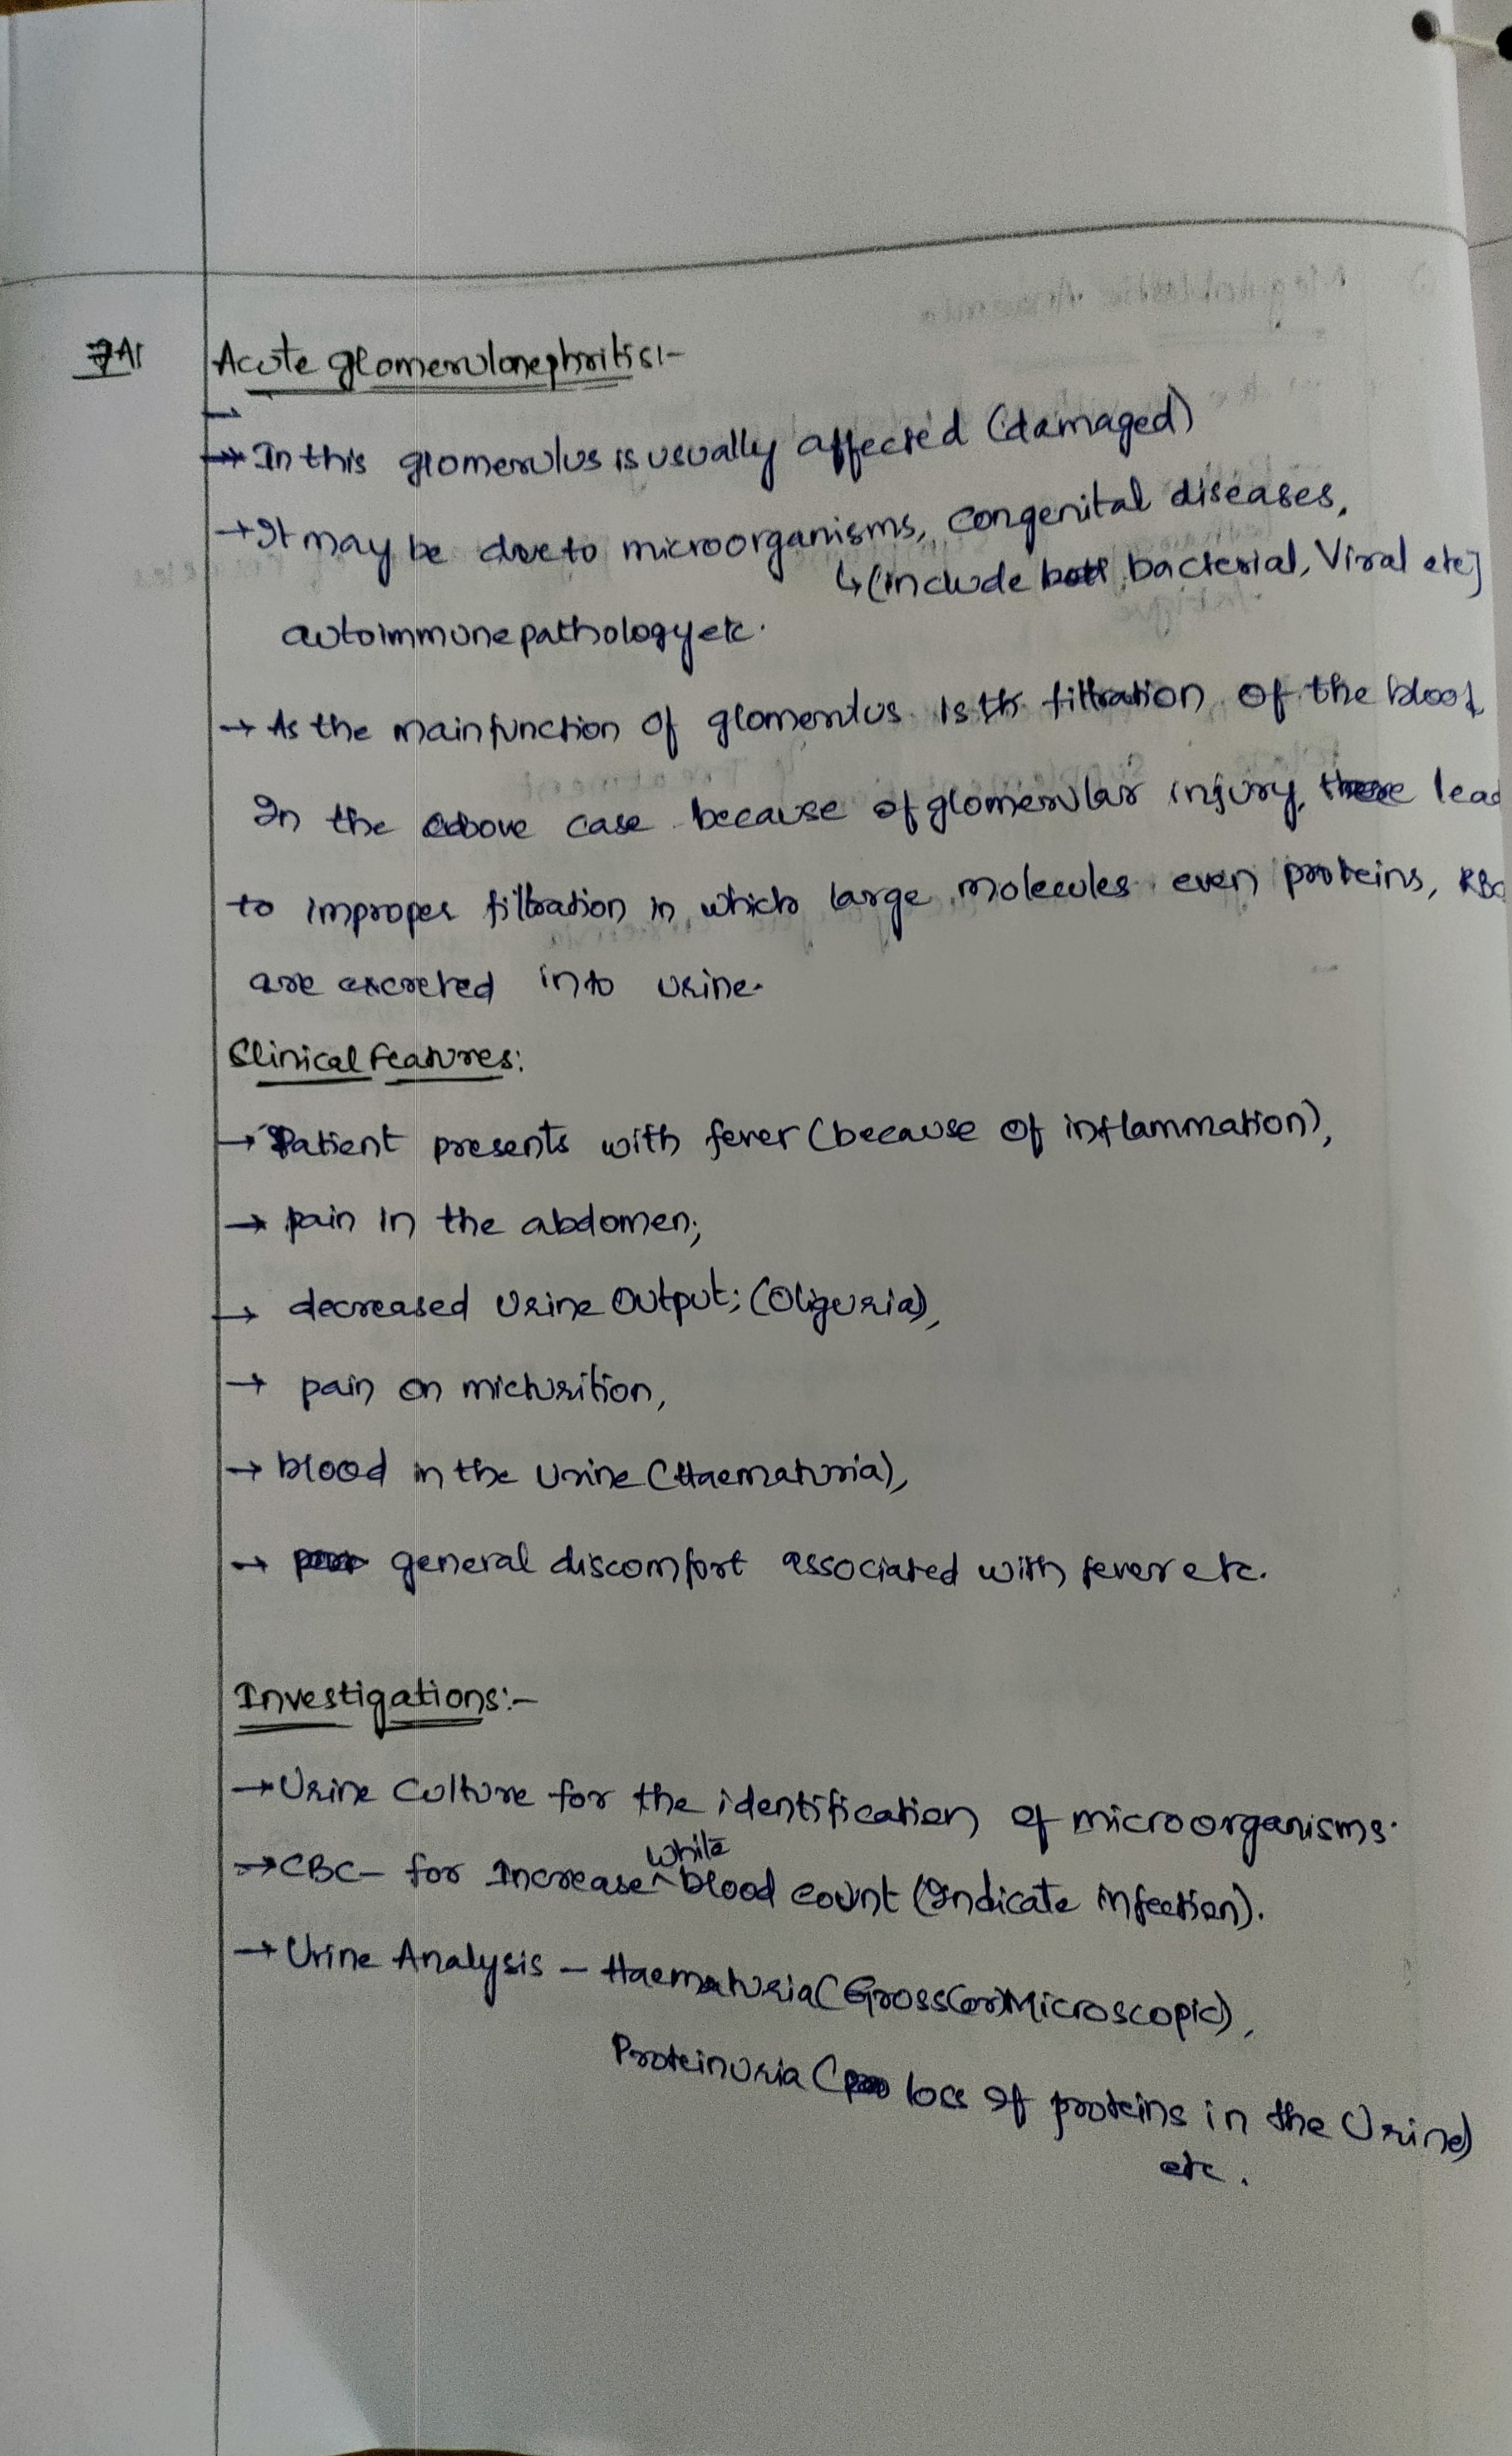 7A1
Acute glomerulonephritis:-
→ In this glomerulus is usually affected (damaged)
→ It may be due to microorganisms, congenital diseases,
↳ (include bacterial, Viral etc]
autoimmune pathology etc.
→ As the main function of glomerulus is the filtration of the blood
In the above case because of glomerular injury, there lead
to improper filtration in which large molecules even proteins, RBC
are excreted into urine.
Clinical Features:
→ Patient presents with fever (because of inflammation),
→ pain in the abdomen;
→ decreased Urine Output; (Oliguria),
→ pain on micturition,
→ blood in the Urine (Haematuria),
→ general discomfort associated with fever etc.
Investigations:-
→ Urine Culture for the identification of microorganisms.
→ CBC - for Increase white blood count (Indicate infection).
→ Urine Analysis - Haematuria (Gross(or)Microscopic),
Proteinuria ( loss of proteins in the Urine)
etc.